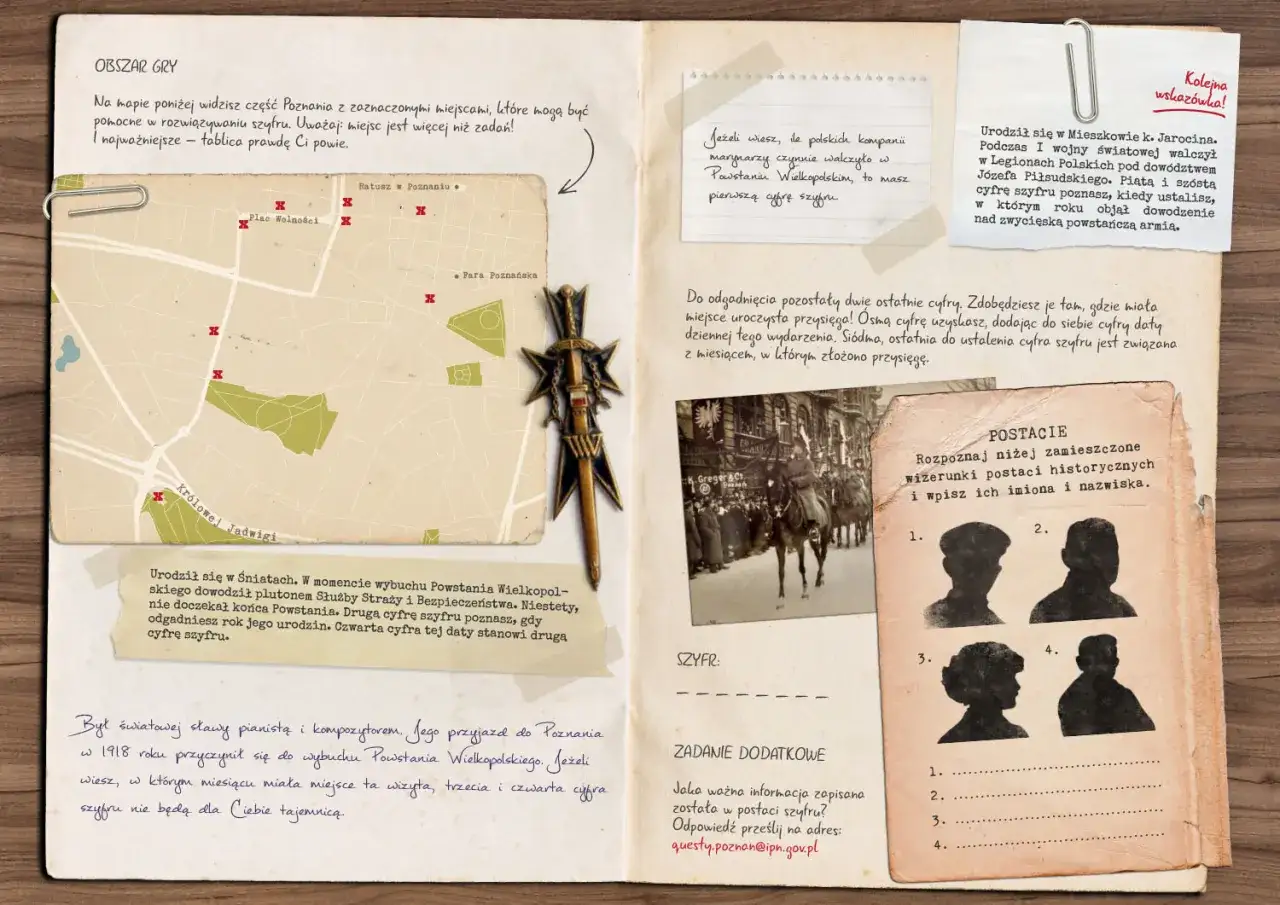 OBSZAR GRY
Na mapie poniżej widzisz część Poznania z zaznaczonymi miejscami, które mogą być
pomocne w rozwiązywaniu szyfru. Uważaj: miejsc jest więcej niż zadań!
I najważniejsze – tablica prawdę Ci powie.
Ratusz w Poznaniu
Plac Wolności
Fara Poznańska
Królowej Jadwigi
Urodził się w Śniatach. W momencie wybuchu Powstania Wielkopol-
skiego dowodził plutonem Służby Straży i Bezpieczeństwa. Niestety,
nie doczekał końca Powstania. Drugą cyfrę szyfru poznasz, gdy
odgadniesz rok jego urodzin. Czwarta cyfra tej daty stanowi drugą
cyfrę szyfru.
Był światowej sławy pianistą i kompozytorem. Jego przyjazd do Poznania
w 1918 roku przyczynił się do wybuchu Powstania Wielkopolskiego. Jeżeli
wiesz, w którym miesiącu miała miejsce ta wizyta, trzecia i czwarta cyfra
szyfru nie będą dla Ciebie tajemnicą.
Jeżeli wiesz, ile polskich kompanii
marynarzy czynnie walczyło w
Powstaniu Wielkopolskim, to masz
pierwszą cyfrę szyfru.
Kolejna
wskazówka!
Urodził się w Mieszkowie k. Jarocina.
Podczas I wojny światowej walczył
w Legionach Polskich pod dowództwem
Józefa Piłsudskiego. Piątą i szóstą
cyfrę szyfru poznasz, kiedy ustalisz,
w którym roku objął dowodzenie
nad zwycięską powstańczą armią.
Do odgadnięcia pozostały dwie ostatnie cyfry. Zdobędziesz je tam, gdzie miała
miejsce uroczysta przysięga! Ósmą cyfrę uzyskasz, dodając do siebie cyfry daty
dziennej tego wydarzenia. Siódma, ostatnia do ustalenia cyfra szyfru jest związana
z miesiącem, w którym złożono przysięgę.
Greger & Co
POSTACIE
Rozpoznaj niżej zamieszczone
wizerunki postaci historycznych
i wpisz ich imiona i nazwiska.
1.
2.
3.
4.
1. ..............................
2. ..............................
3. ..............................
4. ..............................
SZYFR:
_ _ _ _ _ _ _ _
ZADANIE DODATKOWE
Jaka ważna informacja zapisana
została w postaci szyfru?
Odpowiedź prześlij na adres:
questy.poznan@ipn.gov.pl